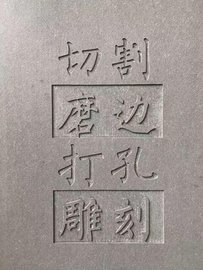 切割
磨边
打孔
雕刻